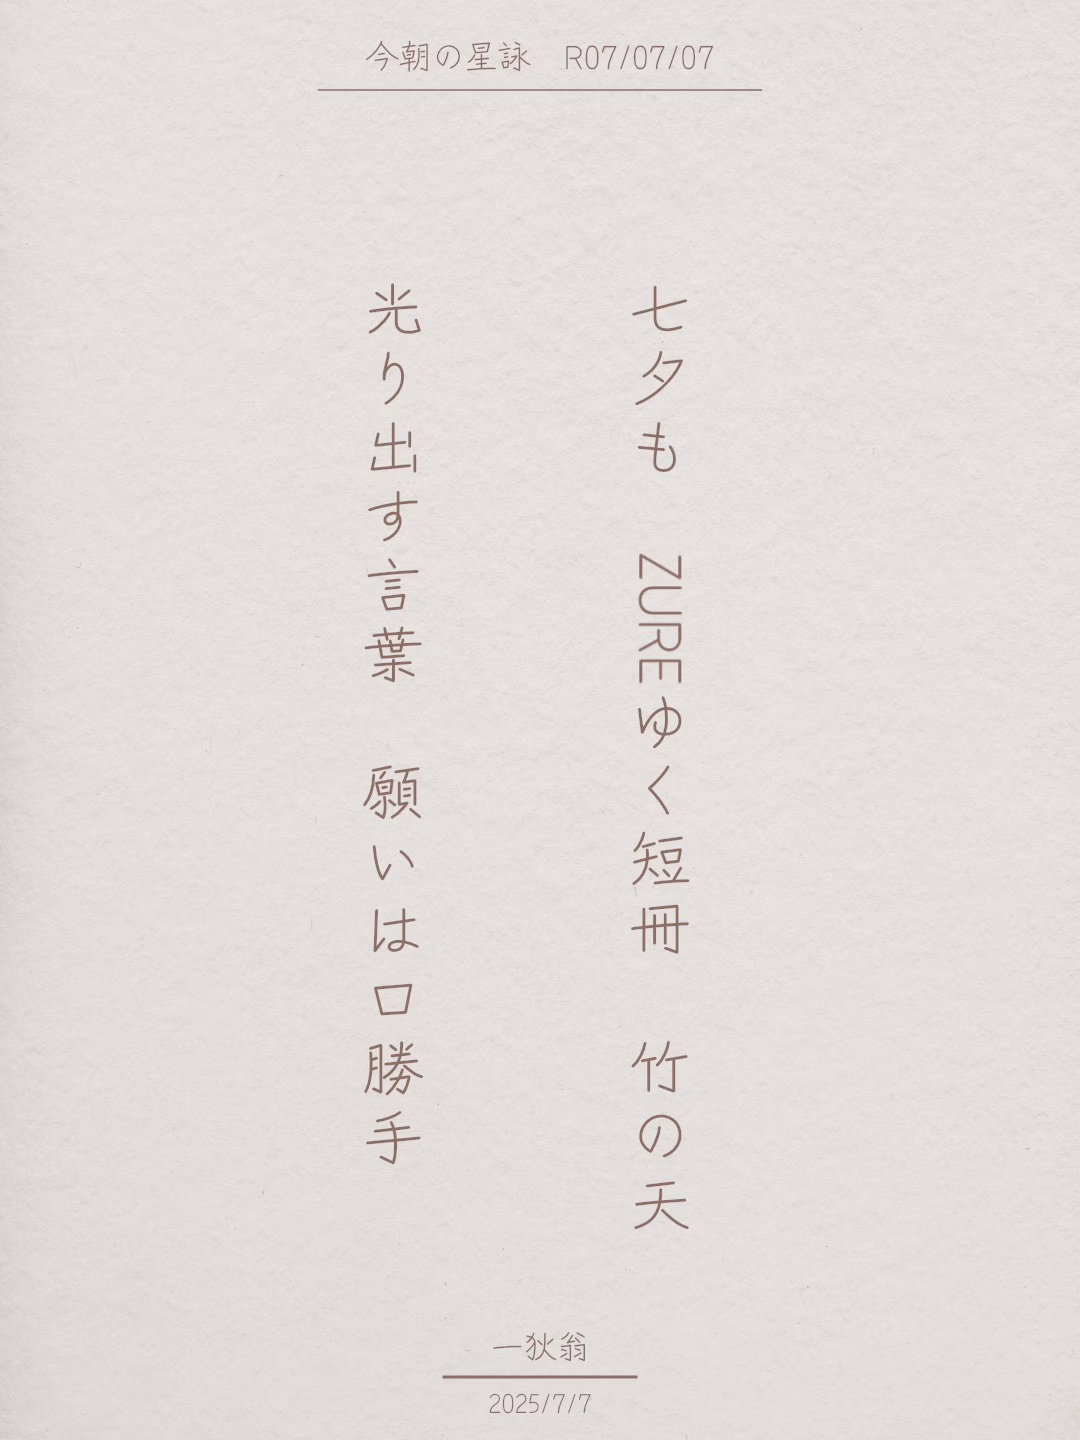 今朝の星詠　R07/07/07
七夕も　ZUREゆく短冊　竹の天
光り出す言葉　願いは口勝手
一狄翁
2025/7/7